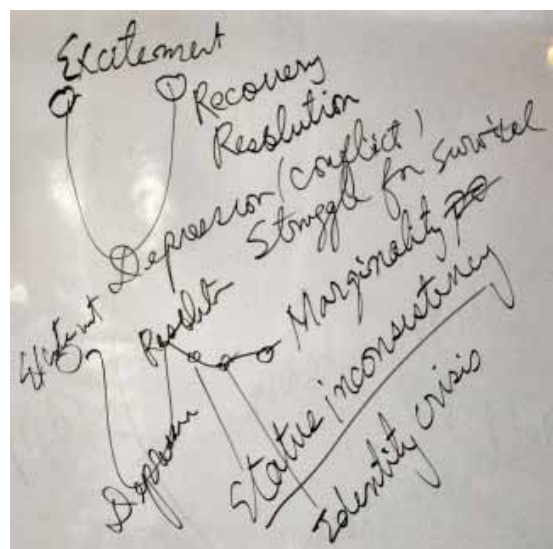 Excitement
Recovery
Resolution
Depression (conflict)
Struggle for survival
Marginality
Status inconsistency
Identity crisis